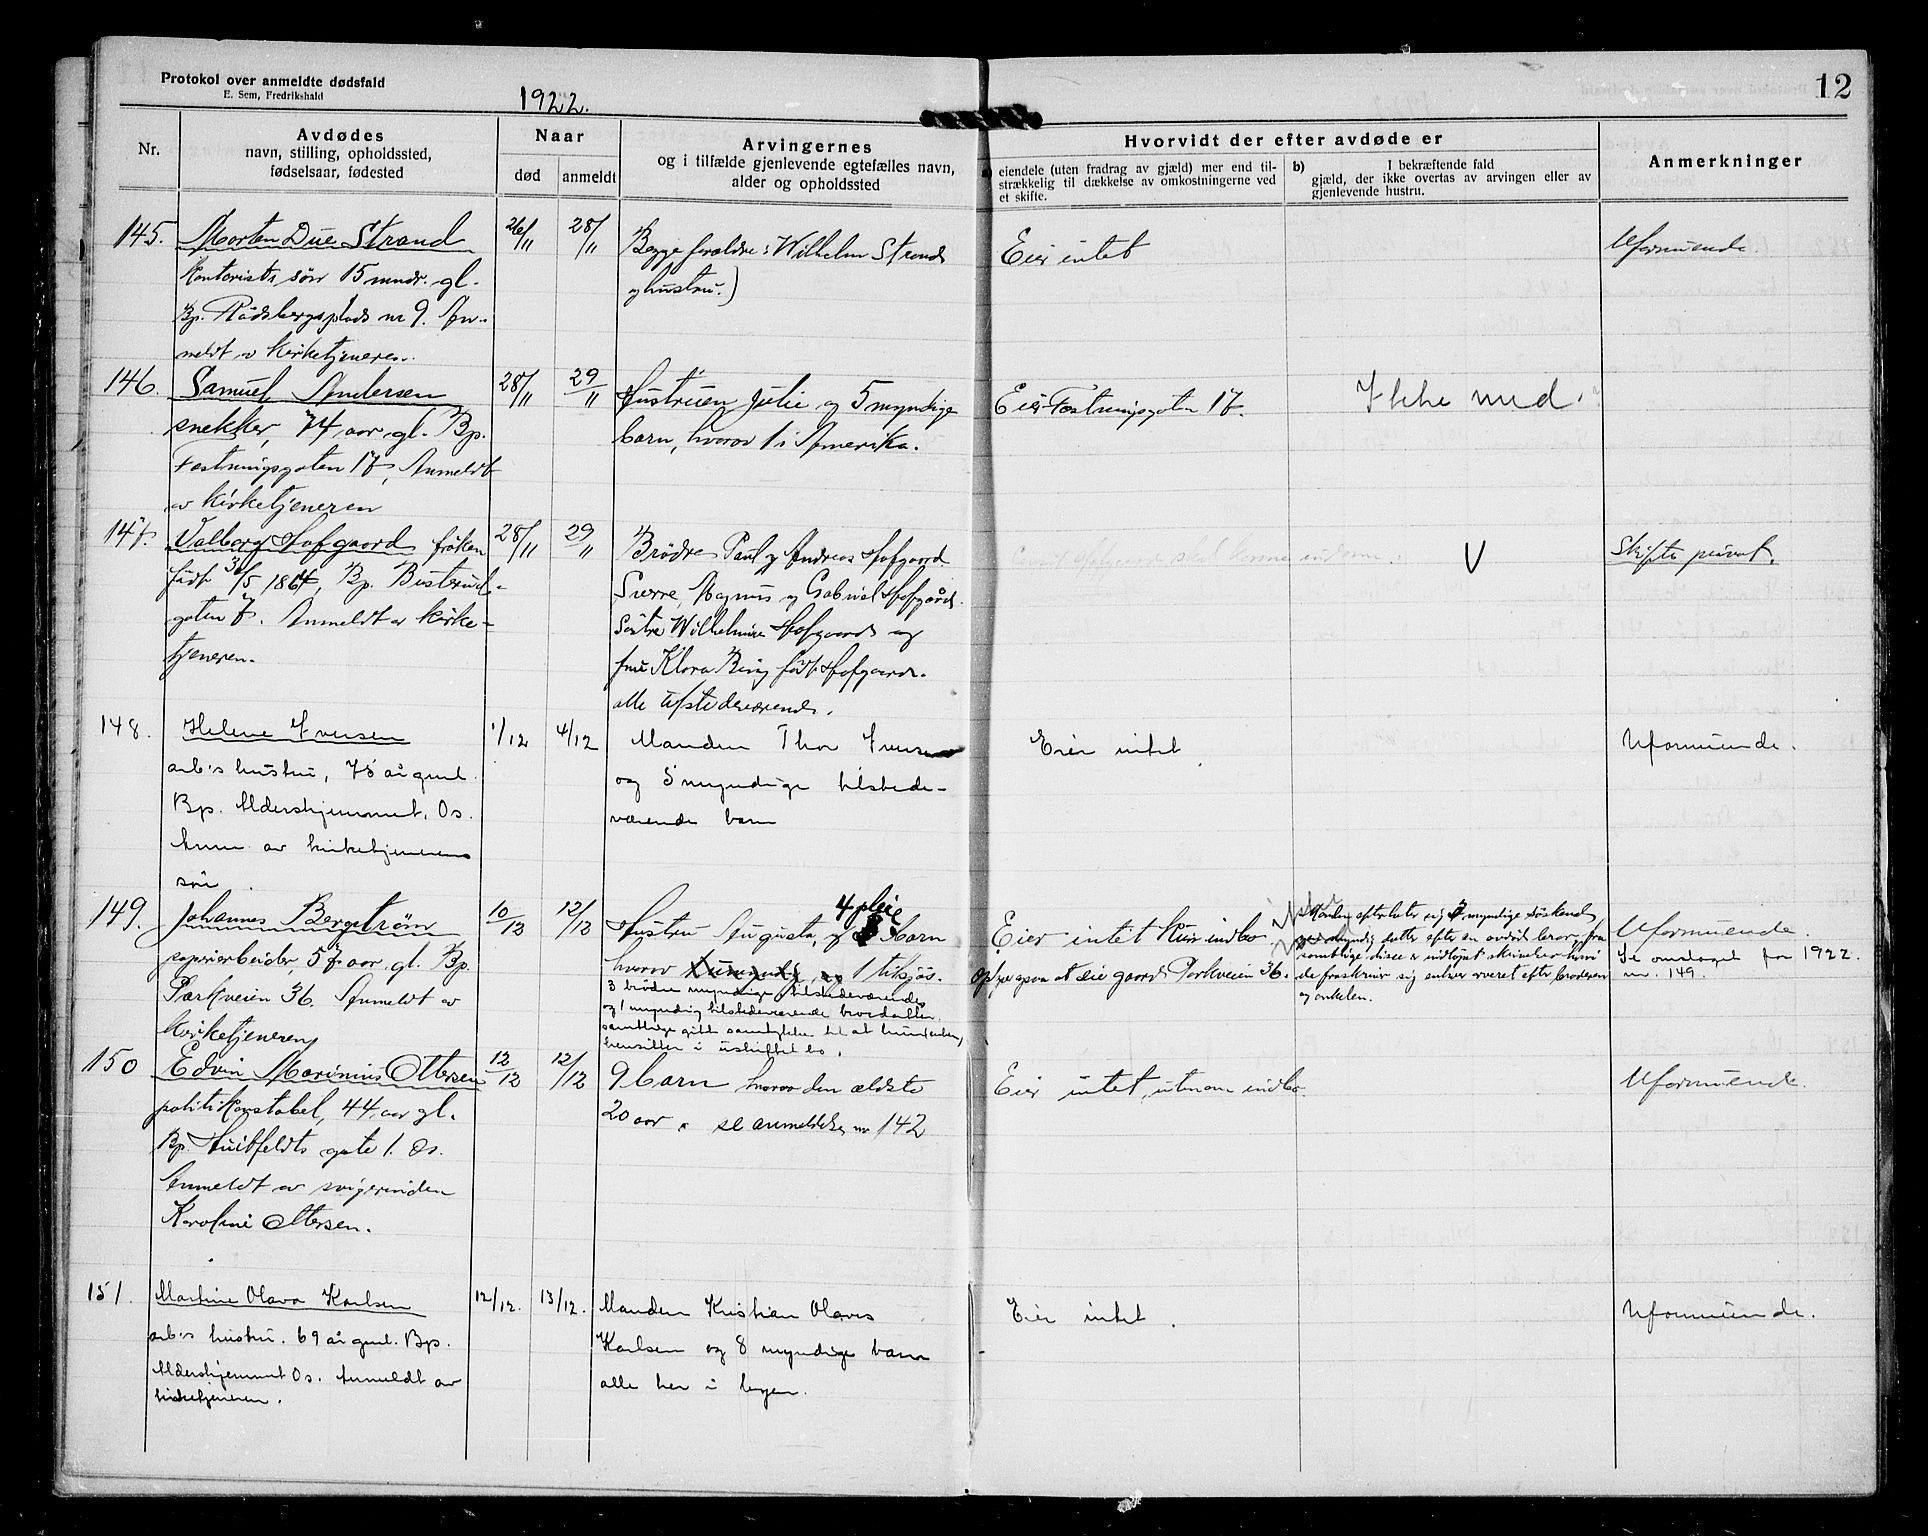 Protokol over anmeldte dødsfald
E. Sem, Fredrikshald
1922.
12
Nr.
Avdødes
navn, stilling, opholdssted,
fødselsaar, fødested
Naar
død
anmeldt
Arvingernes
og i tilfælde gjenlevende egtefælles navn,
alder og opholdssted
Hvorvidt der efter avdøde er
eiendele (uten fradrag av gjæld) mer end til-
strækkelig til dækkelse av omkostningerne ved
et skifte.
b)
I bekræftende fald
gjæld, der ikke overtas av arvingen eller av
gjenlevende hustru.
Anmerkninger
145. Morten Due Strand
Kontorists sønn 15 mndr. gl.
Bp. Rødsbergsplads nr 9. An-
meldt av kirketjeneren.
26/11
28/11
Begge forældre: Wilhelm Strand
og hustru.)
Eier intet
Uformuende.
146. Samuel Andersen
snekker, 74 aar gl. Bp.
Fæstningsgaten 17, Anmeldt
av kirketjeneren
28/11
29/11
Hustruen Julie og 5 myndige
barn, hvorav 1 i Amerika.
Eier Fæstningsgaten 17.
Ikke med.
147. Valborg Hofgaard frøken
født 30/5 1864, Bp. Busterud-
gaten 7. Anmeldt av kirke-
tjeneren.
28/11
29/11
Brødre Paul og Andreas Hofgaard
Sverre, Magnus og Gabriel Hofgård.
Søstre Wilhelmine Hofgaard og
frue Klara Bing født Hofgaard.
alle tilstedeværende.
V
Skifte privat.
148. Helene Iversen
arb's hustru, 75 år gml.
Bp. Aldershjemmet, Os.
Anm. av kirketjenerens
søn.
1/12
4/12
Manden Thor Iversen
og 5 myndige tilstede-
værende barn
Eier intet.
Uformuende.
149. Johannes Bergstrøm
papirarbeider, 57 aar gl. Bp.
Parkveien 36. Anmeldt av
kirketjeneren
10/12
12/12
4 pleie
Hustru Augusta, og barn
hvorav umyndig og 1 tilsjøs.
3 brødre myndige, tilstedeværende
og 1 myndig tilstedeværende brordatter.
samtlige gitt samtykke til at hustruen
hensitter i uskiftet bo.
Eier intet kun indbo.
Oppe
at eie gaard Parkveien 36.
Manden efterlater sig 3 myndige søskende
myndig datter efter en avdød bror, fra
samtlige disse er indløpet skrivelse hvori
de fraskriver sig enhver arveret efter broderen
og onkelen.
Uformuende.
Se omslaget for 1922.
nr. 149.
150 Edvin Marinius Ottersen
politikonstabel, 44 aar gl.
Bp. Huitfeldts gate 1. Os.
Anmeldt av svigerinden
Karoline Ottersen.
12/12
12/12
9 barn hvorav den ældste
20 aar. se anmeldelse nr 142
Eier intet, utenom indbo.
Uformuende.
151. Martine Olava Karlsen
arb's hustru. 69 år gml. Bp.
Aldershjemmet Os. Anmeldt av
kirketjeneren.
12/12.
13/12.
Manden Kristian Olaves
Karlsen og 8 myndige barn
alle her i byen.
Eier intet.
Uformuende.